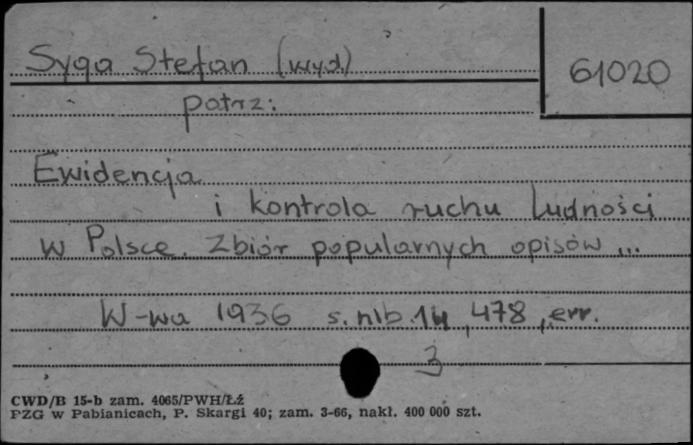 Syga Stefan (wyd.)
61020
patrz:
Ewidencja
i kontrola ruchu Ludności
w Polsce. Zbiór popularnych opisów ...
W-wa 1936 s. nlb. 14, 478, err.
3
CWD/B 15-b zam. 4065/PWH/Łż
PZG w Pabianicach, P. Skargi 40; zam. 3-66, nakł. 400 000 szt.